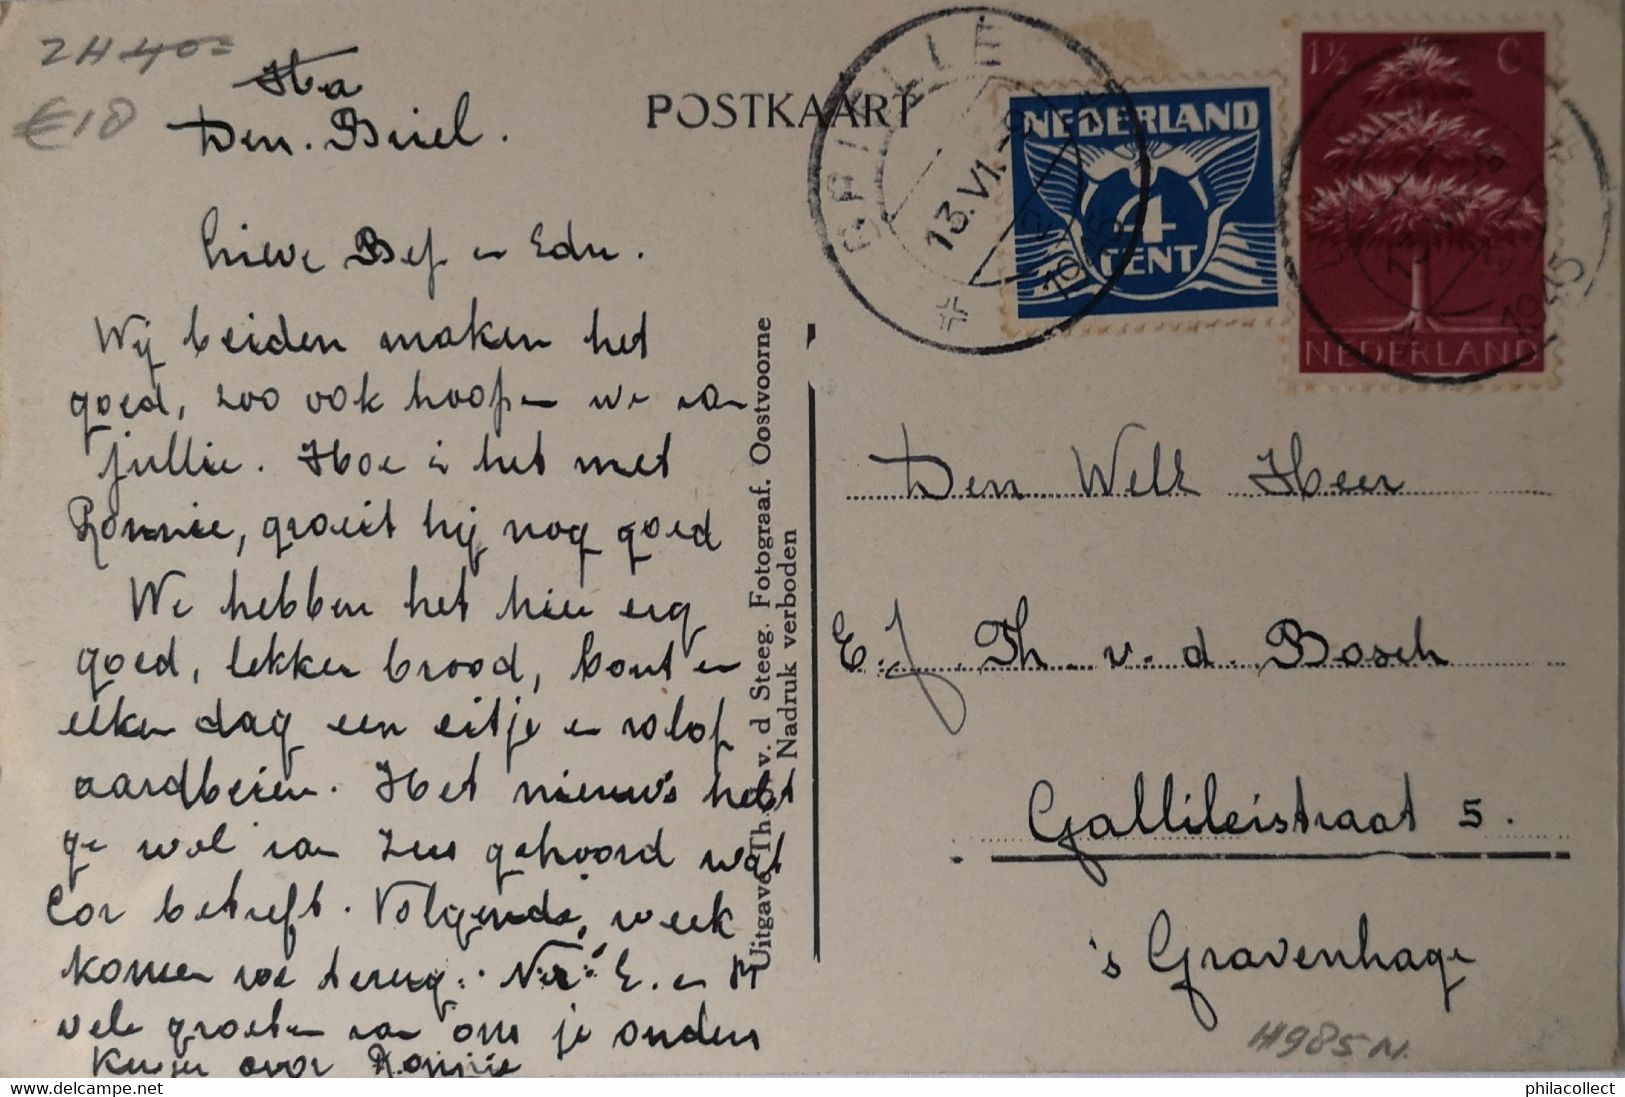 ZH 40=
€18
Den. Briel.
POSTKAART
BRIELLE
13.VI.
1945
NEDERLAND
4
CENT
1½ C
NEDERLAND
1945
Lieve Bef en Edu.
Wij beiden maken het
goed, zoo ook hoopen we van
jullie. Hoe is het met
Ronnie, groeit hij nog goed
We hebben het hier erg
goed, lekker brood, bout en
elken dag een eitje en volop
aardbeien. Het nieuws hebt
ge wel van Zus gehoord wat
Cor betreft. Volgende week
komen we terug. E. en M
vele groeten van ons je ouders
Kusjes over Ronnie
Uitgave Th. v. d Steeg. Fotograaf. Oostvoorne
Nadruk verboden
Den Welk Heer
E. J. Th. v. d. Bosch
Gallileistraat 5.
's Gravenhage
H985N.
philacollect